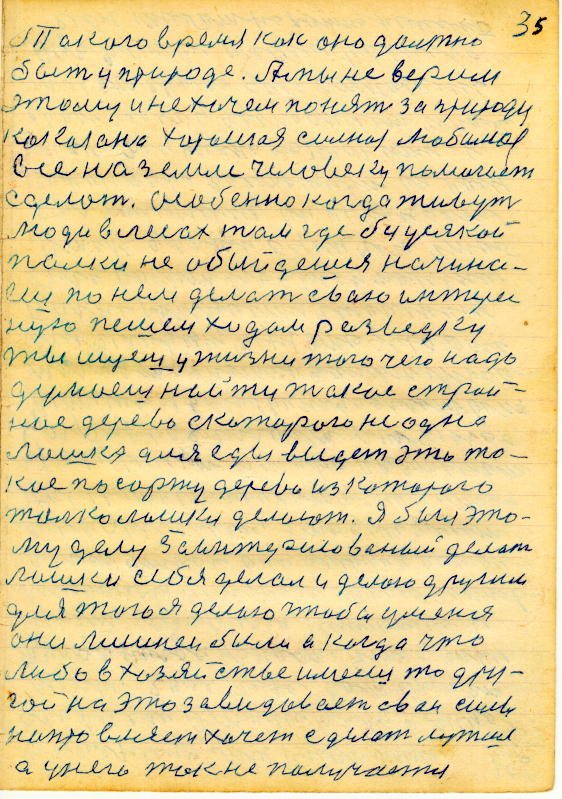 35
Такого время как оно должно
быть у природе. А мы не верим
этому и не хочем понят за природу
какая она хорошая силная любимая
все на земле человеку помогает
сделат. Особенно когда живут
люди в лесах там где без усякой
палки не обыйдешся начина-
еш по нем делат сваю
пешем ходам разведку
ты ищеш у жизни того чего надо
думаеш найти такое строй-
ное дерево с которого не одна
лошка для еды выдет это та-
кое по сорту дерево из которого
толко лошки делают. Я был это-
му делу заинтерисованый делат
лошки себя делал и делаю другим
для того я делаю чтобы у меня
они лишнеи были а когда что
либо в хозяйстве имееш то дру-
гой на это завидывает сваи силы
направляет хочет сделат лутше
а у него так не получается